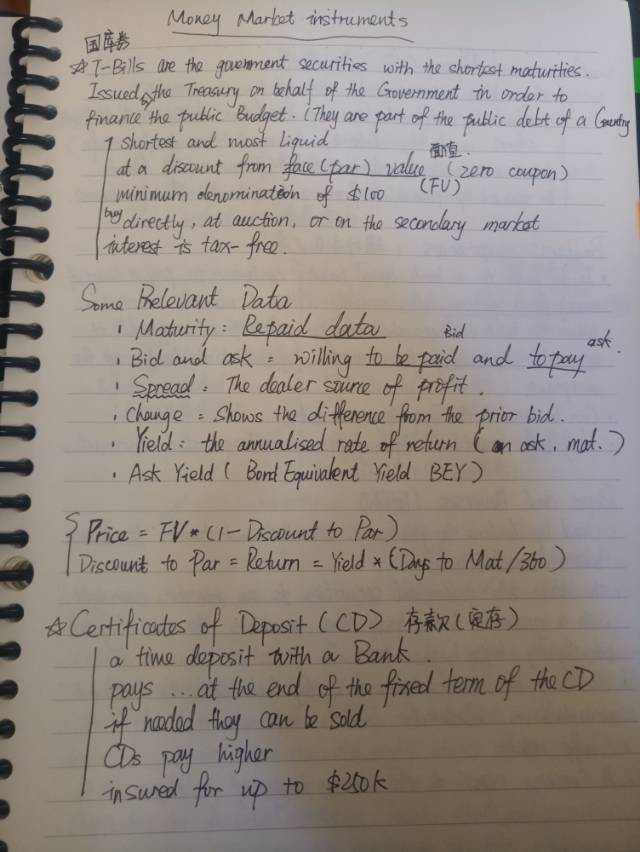 Money Market instruments
国库券
☆ T-Bills are the government securities with the shortest maturities.
Issued by the Treasury on behalf of the Government in order to
finance the public Budget. (They are part of the public debt of a Country
shortest and most liquid
面值
at a discount from face (par) value (zero coupon)
(FV)
minimum denomination of $100
buy directly, at auction, or on the secondary market
interest is tax-free.
Some Relevant Data
· Maturity: Repaid data
Bid ask
· Bid and ask = willing to be paid and to pay.
· Spread: The dealer source of profit.
· Change = Shows the difference from the prior bid.
· Yield: the annualised rate of return (on ask, mat.)
· Ask Yield ( Bond Equivalent Yield BEY)
Price = FV * (1 - Discount to Par)
Discount to Par = Return = Yield * (Days to Mat/360)
☆ Certificates of Deposit (CD) 存款(定存)
a time deposit with a Bank.
pays ... at the end of the fixed term of the CD
if needed they can be sold
CDs pay higher
insured for up to $250k